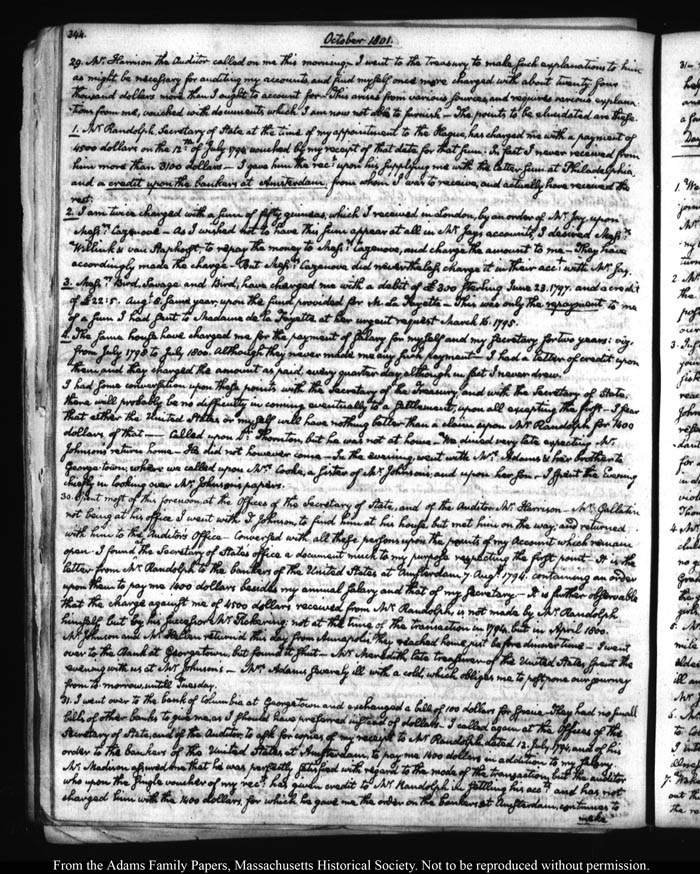 344.
October 1801.
29. Mr. Harrison the Auditor called on me this morning. I went to the treasury to make such explanations to him
as might be necessary for auditing my accounts, and find myself once more charged with about twenty four
thousand dollars more than I ought to account for. This arises from various sources, and requires various explana-
tions from me, vouched with documents which I am now not able to furnish — The points to be elucidated are these.
1. Mr. Randolph, Secretary of State at the time of my appointment to the Hague, has charged me with a payment of
4500 dollars on the 12th of July 1794 vouched by my receipt of that date for that sum. In fact I never received from
him more than 3100 dollars — I gave him the rect. upon his supplying me with the latter sum at Philadelphia,
and a credit upon the bankers at Amsterdam, from whom I was to receive, and actually have received the
rest.
2. I am twice charged with a sum of fifty guineas, which I received in London, by an order of Mr. Jay, upon
Messrs. Cazenove — As I wished not to have this sum appear at all in Mr. Jay's accounts, I desired Messrs.
Willink & van Staphorst, to repay the money to Messrs. Cazenove, and charge the amount to me — They have
accordingly made the charge — But Messrs. Cazenove did nevertheless charge it in their acct. with Mr. Jay.
3. Messrs. Bird, Savage and Bird, have charged me with a debit of £300 Sterling June 23. 1797. and a credit
of £22:5. Augt. 8. same year, upon the fund provided for M. La Fayette — This was only the repayment to me
of a sum I had sent to Madame de la Fayette at her urgent request March 16. 1795.
4. The same house have charged me for the payment of salary for myself and my Secretary for two years: viz.
from July 1798 to July 1800. Although they never made me any such payment — I had a letter of credit upon
them, and they charged the amount as paid every quarter day although in fact I never drew.
I had some conversation upon these points with the Secretary of the Treasury, and with the Secretary of State,
there will probably be no difficulty in coming eventually to a settlement, upon all excepting the first — I fear
that either the United States or myself will have nothing better than a claim upon Mr. Randolph for 1400
dollars of that — Called upon Dr. Thornton, but he was not at home. We dined very late expecting Mr.
Johnson's return home — He did not however come — In the evening, went with Mrs. Adams & her brother to
George-town; where we called upon Mrs. Cooke, a sister of Mr. Johnson's, and upon her son — I spent the Evening
chiefly in looking over Mr. Johnson's papers.
30. Spent most of this forenoon at the Offices of the Secretary of State, and of the Auditor Mr. Harrison — Mr. Gallatin
not being at his office I went with T. Johnson, to find him at his house, but met him on the way, and returned
with him to the Auditor's Office — Conversed with all these persons upon the points of my Account which remain
open. I found the Secretary of States office a document much to my purpose respecting the first point — It is the
letter from Mr. Randolph to the bankers of the United States at Amsterdam, 7. Augt. 1794. containing an order
upon them to pay me 1400 dollars besides my annual salary and that of my Secretary — It is further observable
that the charge against me of 4500 dollars received from Mr. Randolph, is not made by Mr. Randolph
himself, but by his successor Mr. Pickering: not at the time of the transaction in 1794, but in April 1800.
Mr. Johnson and Mr. Hellen return'd this day from Annapolis; they reached home just before dinner time — I went
over to the Bank at Georgetown, but found it shut — Mr. Meredith, late treasurer of the United States spent the
evening with us at Mr. Johnson's — Mrs. Adams severely ill with a cold, which obliges me to postpone our journey
from to-morrow, until Tuesday.
31. I went over to the bank of Columbia at Georgetown and exchanged a bill of 100 dollars for specie. They had no small
bills of other banks to give me, as I should have preferred instead of dollars. I called again at the Offices of the
Secretary of State, and of the Auditor, to ask for copies of my receipt to Mr. Randolph, dated 12. July, 1794, and of his
order to the bankers of the United States at Amsterdam, to pay me 1400 dollars in addition to my salary.
Mr. Madison assured me that he was perfectly satisfied with regard to the mode of the transaction, but the auditor
who upon the single voucher of my rect. has given credit to Mr. Randolph in settling his acct. and has not
charged him with the 1400 dollars, for which he gave me the order on the bankers at Amsterdam, continues to
make
From the Adams Family Papers, Massachusetts Historical Society. Not to be reproduced without permission.